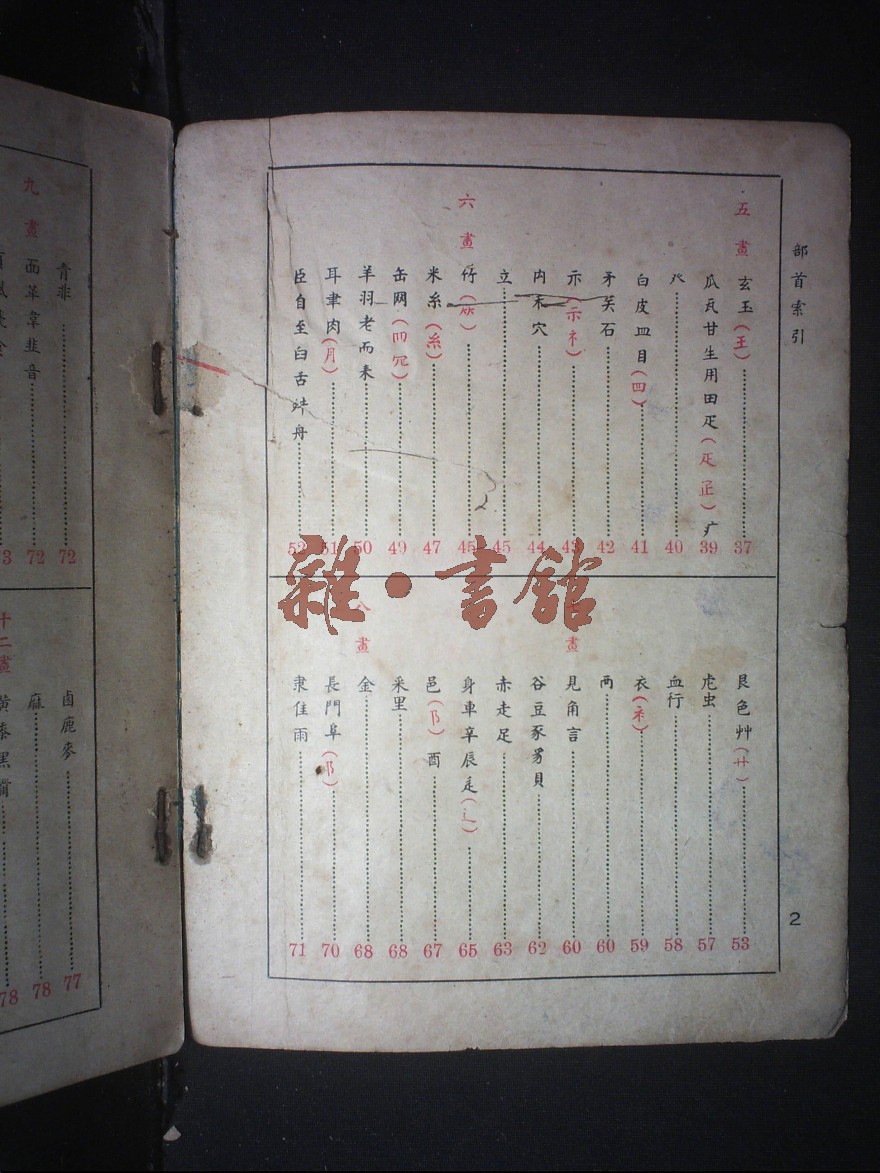 部首索引
五畫 玄玉(王) 37
瓜瓦甘生用田疋(疋𤴔)疒 39
癶 40
白皮皿目(罒) 41
矛矢石 42
示(示礻) 43
禸禾穴 44
立 45
六畫 竹(𥫗) 45
米糸(糹) 47
缶网(罒㓁) 49
羊羽老而耒 50
耳聿肉(月) 51
臣自至臼舌舛舟 52
艮色艸(艹) 53
虍虫 57
血行 58
衣(衤) 59
襾 60
畫 見角言 60
谷豆豕豸貝 62
赤走足 63
身車辛辰辵(辶) 65
邑(阝)酉 67
釆里 68
畫 金 68
長門阜(阝) 70
隶隹雨 71
2
雜·書館
青非 72
九畫 面革韋韭音 72
鹵鹿麥 77
麻 78
十二畫 黍黑黹 78